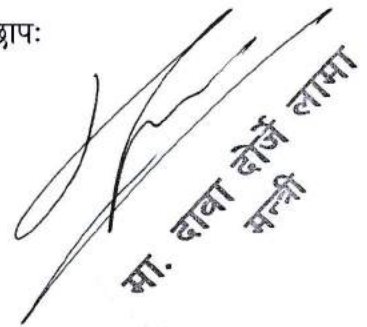 छाप:
मा. दावा दोर्जे लामा
मन्त्री